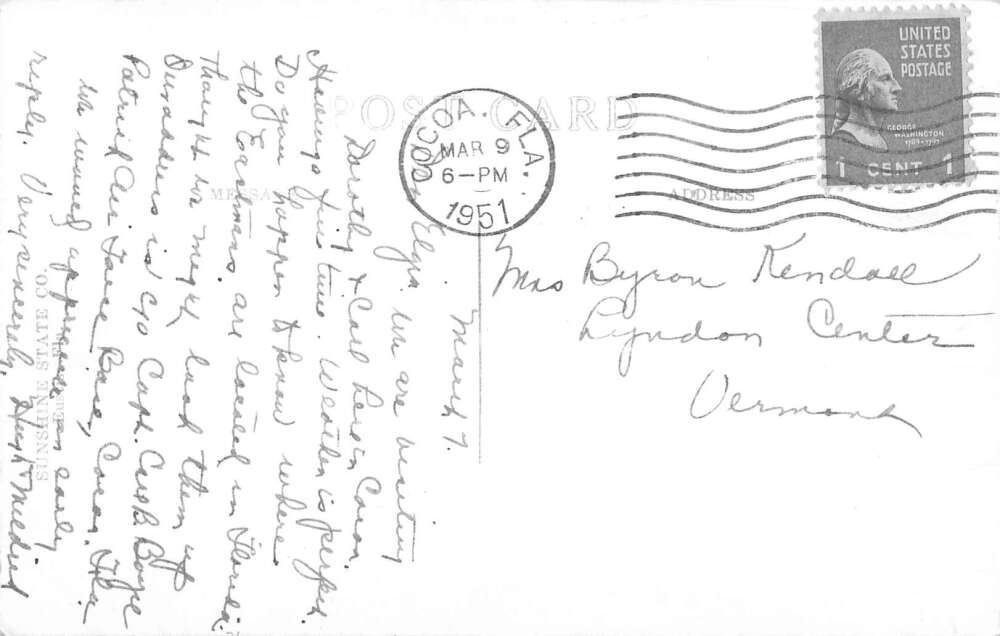 POST CARD
MESSAGE
ADDRESS
COCOA, FLA.
MAR 9
6-PM
1951
UNITED
STATES
POSTAGE
GEORGE
WASHINGTON
1789-1797
1 CENT 1
Mrs Byron Kendall
Lyndon Center
Vermont
March 7.
we are visiting
Dorothy & Carl here in Cocoa.
Having fine time. Weather is perfect.
Do you happen to know where
the Eastmans are located in Florida?
Thought we might look them up
Our address is c/o Capt. Carl B. Boyle
Patrick Air Force Base, Cocoa, Fla
We would appreciate an early
reply. Very sincerely, Hugh & Mildred
SUNSHINE STATE CO.